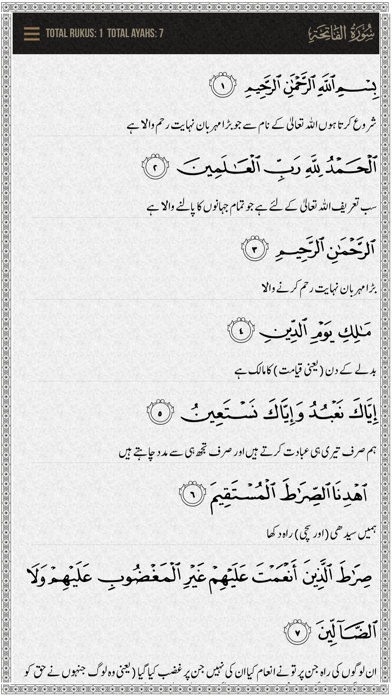 TOTAL RUKUS: 1 TOTAL AYAHS: 7 سُورَةُ الفَاتِحَةِ
بِسْمِ ٱللَّهِ ٱلرَّحْمَٰنِ ٱلرَّحِيمِ ١
شروع کرتا ہوں اللہ تعالیٰ کے نام سے جو بڑا مہربان نہایت رحم والا ہے
ٱلْحَمْدُ لِلَّهِ رَبِّ ٱلْعَٰلَمِينَ ٢
سب تعریف اللہ تعالیٰ کے لئے ہے جو تمام جہانوں کا پالنے والا ہے
ٱلرَّحْمَٰنِ ٱلرَّحِيمِ ٣
بڑا مہربان نہایت رحم کرنے والا
مَٰلِكِ يَوْمِ ٱلدِّينِ ٤
بدلے کے دن (یعنی قیامت) کا مالک ہے
إِيَّاكَ نَعْبُدُ وَإِيَّاكَ نَسْتَعِينُ ٥
ہم صرف تیری ہی عبادت کرتے ہیں اور صرف تجھ ہی سے مدد چاہتے ہیں
ٱهْدِنَا ٱلصِّرَٰطَ ٱلْمُسْتَقِيمَ ٦
ہمیں سیدھی (اور سچی) راه دکھا
صِرَٰطَ ٱلَّذِينَ أَنْعَمْتَ عَلَيْهِمْ غَيْرِ ٱلْمَغْضُوبِ عَلَيْهِمْ وَلَا
ٱلضَّآلِّينَ ٧
ان لوگوں کی راه جن پر تو نے انعام کیا ان کی نہیں جن پر غضب کیا گیا (یعنی وه لوگ جنہوں نے حق کو